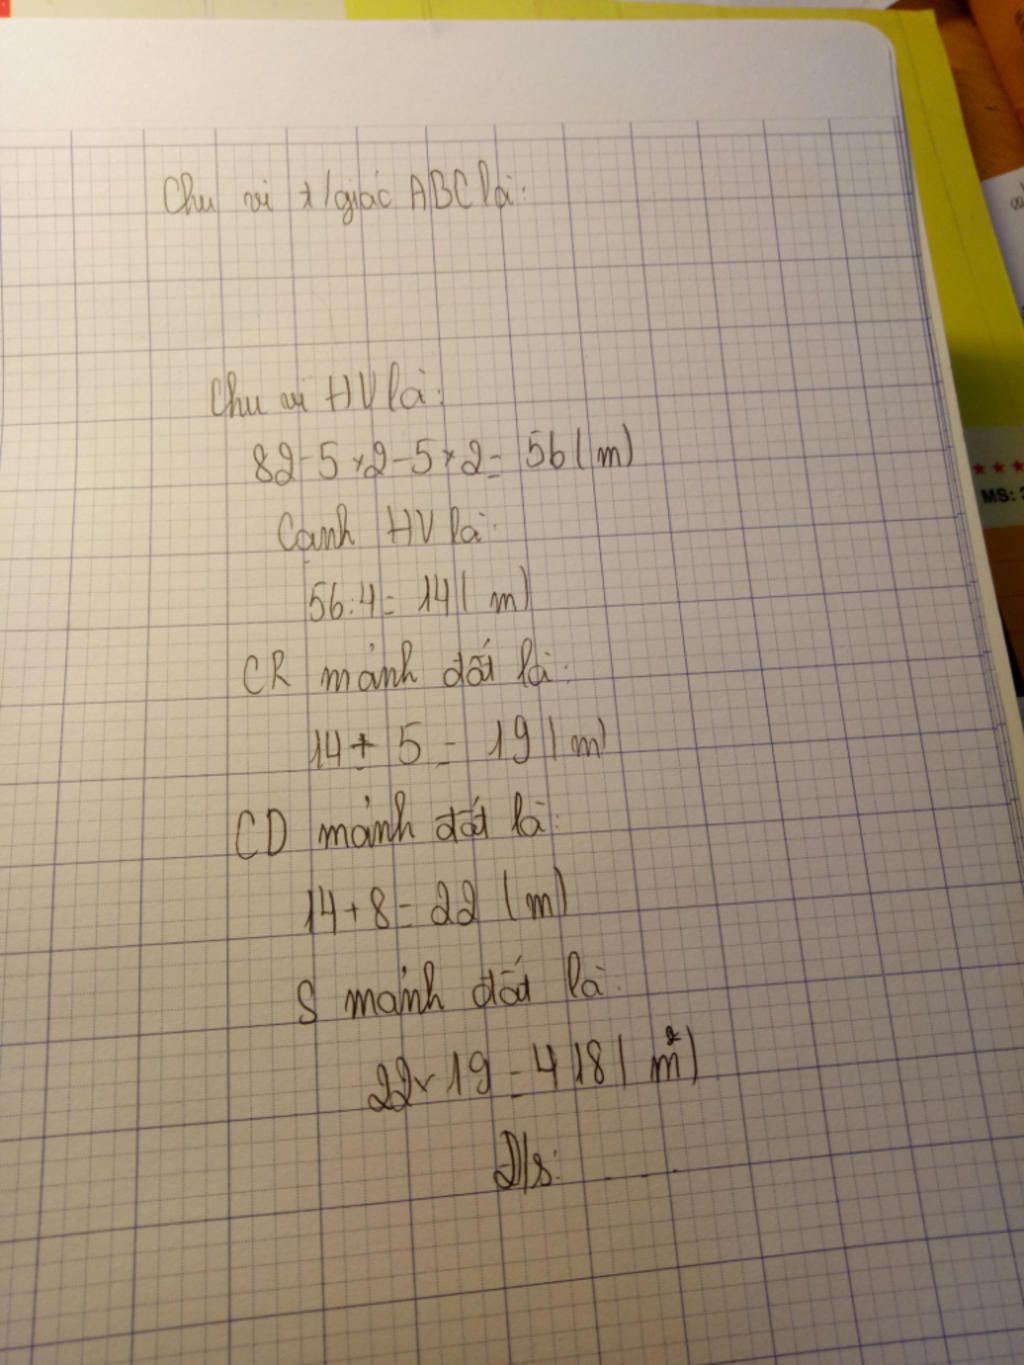 Chu vi t/giác ABC là:
Chu vi HV là:
82-5×2-5×2= 56(m)
Cạnh HV là:
56:4= 14( m)
CR mảnh đất là:
14+ 5 = 19( m)
CD mảnh đất là:
14+8= 22 (m)
S mảnh đất là:
22×19 = 418( m²)
Đ/s: .......
★★★
MS: